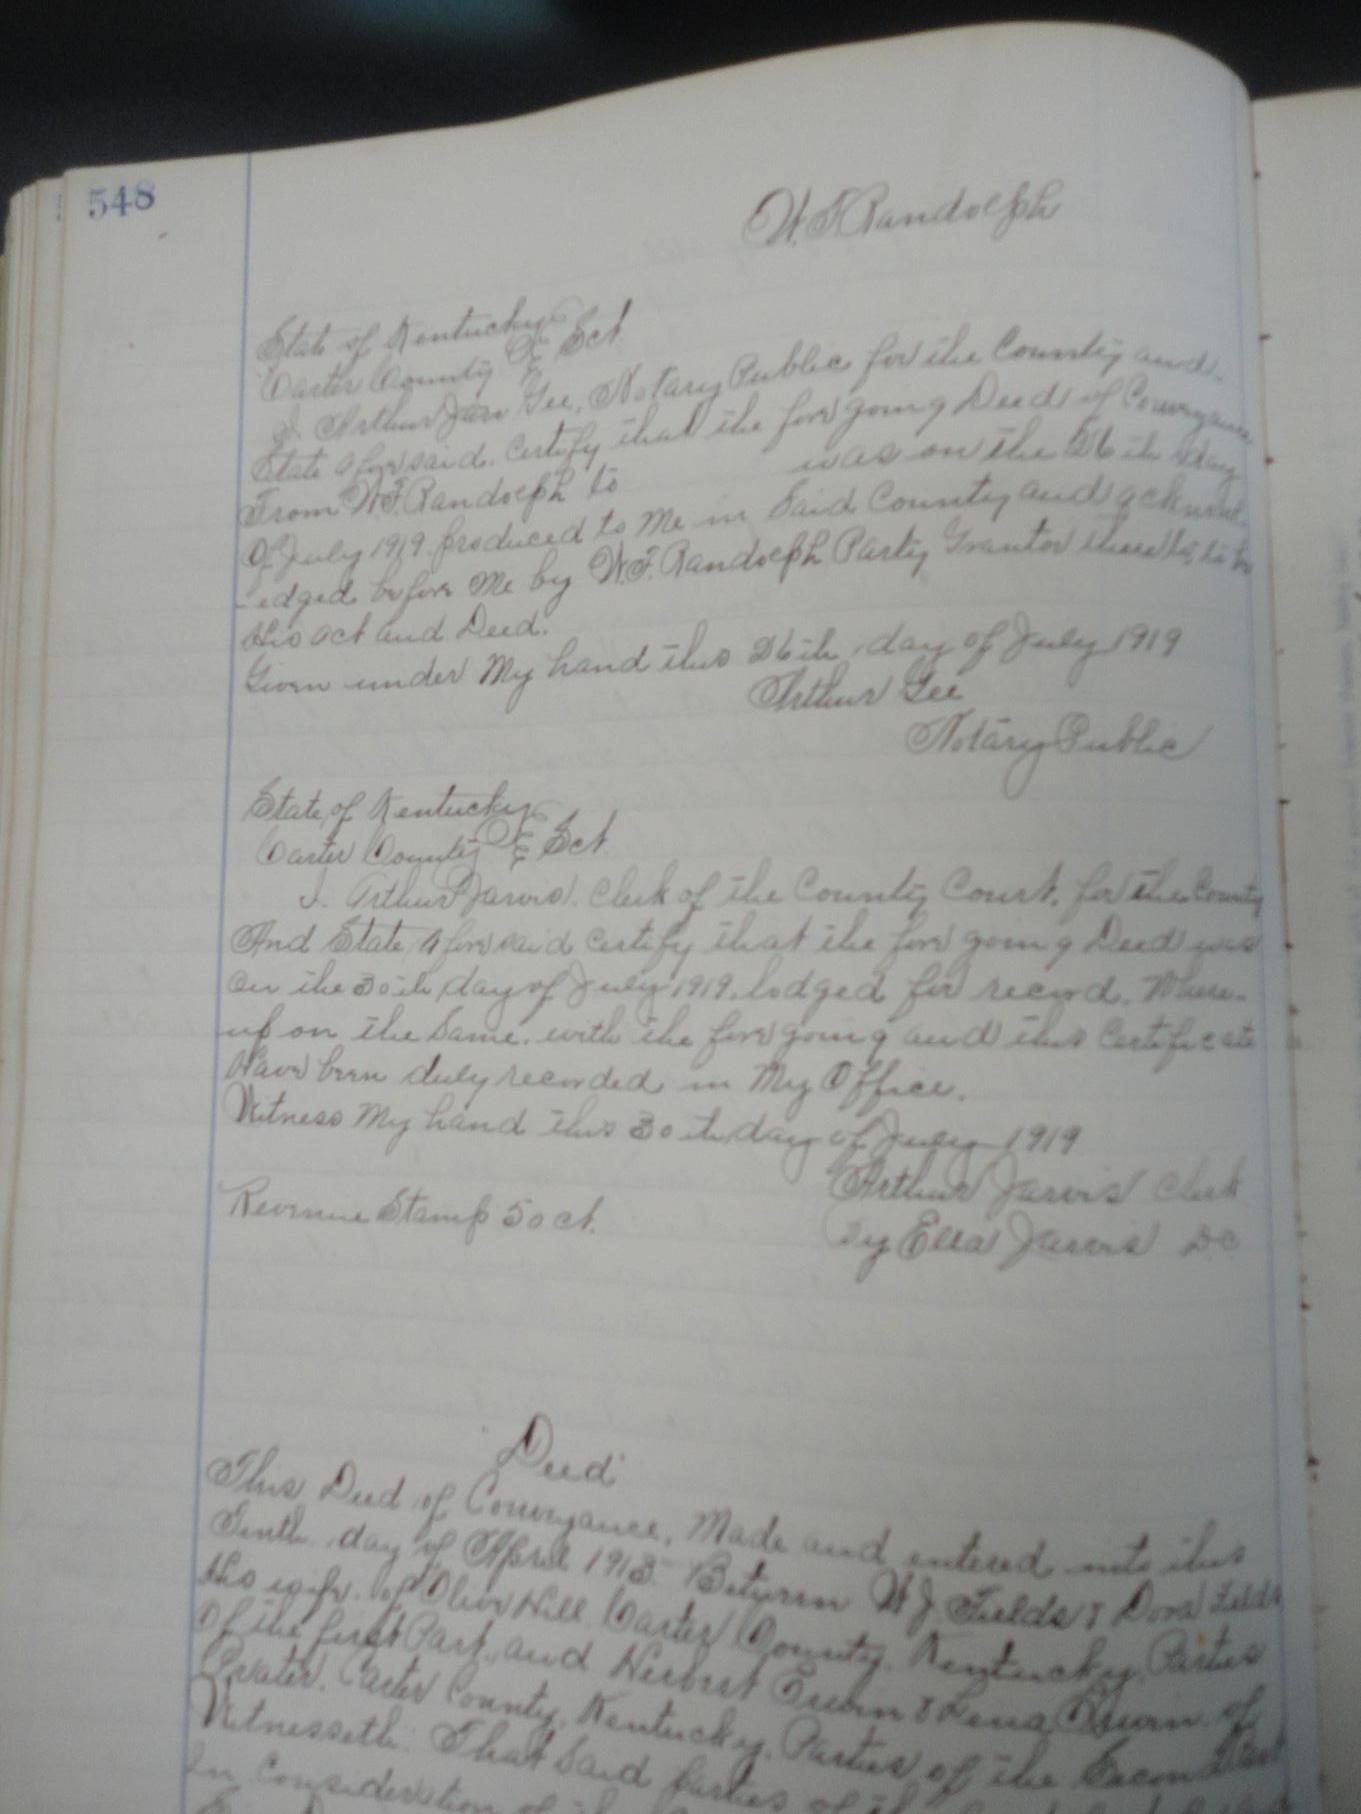 548
W. F. Randolph
State of Kentucky
Carter County } Sct.
I. Arthur Gee, Notary Public for the County and
State aforesaid. Certify that the fore going Deed of Conveyance
From W.F. Randolph to was on the 26th day
Of July 1919 produced to Me in Said County and acknowl-
-edged before Me by W.F. Randolph Party Grantor thereto, to be
His act and Deed.
Given under My hand this 26th day of July 1919
Arthur Gee
Notary Public
State of Kentucky
Carter County } Sct
I. Arthur Jarvis. Clerk of the County Court. for the County
And State Aforesaid Certify that the fore going Deed was
On the 30th day of July 1919. lodged for record. Where-
up on the Same. with the fore going and this Certificate
Have been duly recorded in My Office.
Witness My hand this 30th day of July 1919
Arthur Jarvis Clerk
Revenue Stamp 50 ct.
By Ella Jarvis D.C
Deed
This Deed of Conveyance. Made and entered into this
Tenth day of April 1913 Between W J Fields & Dora Fields
His wife. of Olive Hill. Carter County. Kentucky. Parties
Of the first Part. and Herbert Erwin & Lena Erwin. of
Prater. Carter County. Kentucky. Parties of the Second Part
Witnesseth: That Said parties of
In Consideration of